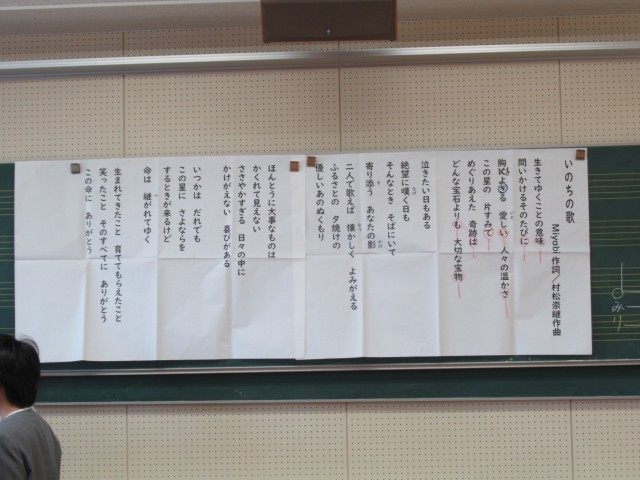 いのちの歌
Miyabi 作詞／村松崇継作曲
生きてゆくことの意味
問いかけるそのたびに
胸によぎる 愛しい 人々の温かさ
この星の 片すみで
めぐりあえた 奇跡は
どんな宝石よりも 大切な宝物
泣きたい日もある
絶望に嘆く日も
そんなとき そばにいて
寄り添う あなたの影
二人で歌えば 懐かしく よみがえる
ふるさとの 夕焼けの
優しいあのぬくもり
ほんとうに大事なものは
かくれて見えない
ささやかすぎる 日々の中に
かけがえない 喜びがある
いつかは だれでも
この星に さよならを
するときが来るけど
命は 継がれてゆく
生まれてきたこと 育ててもらえたこと
笑ったこと そのすべてに ありがとう
この命に ありがとう